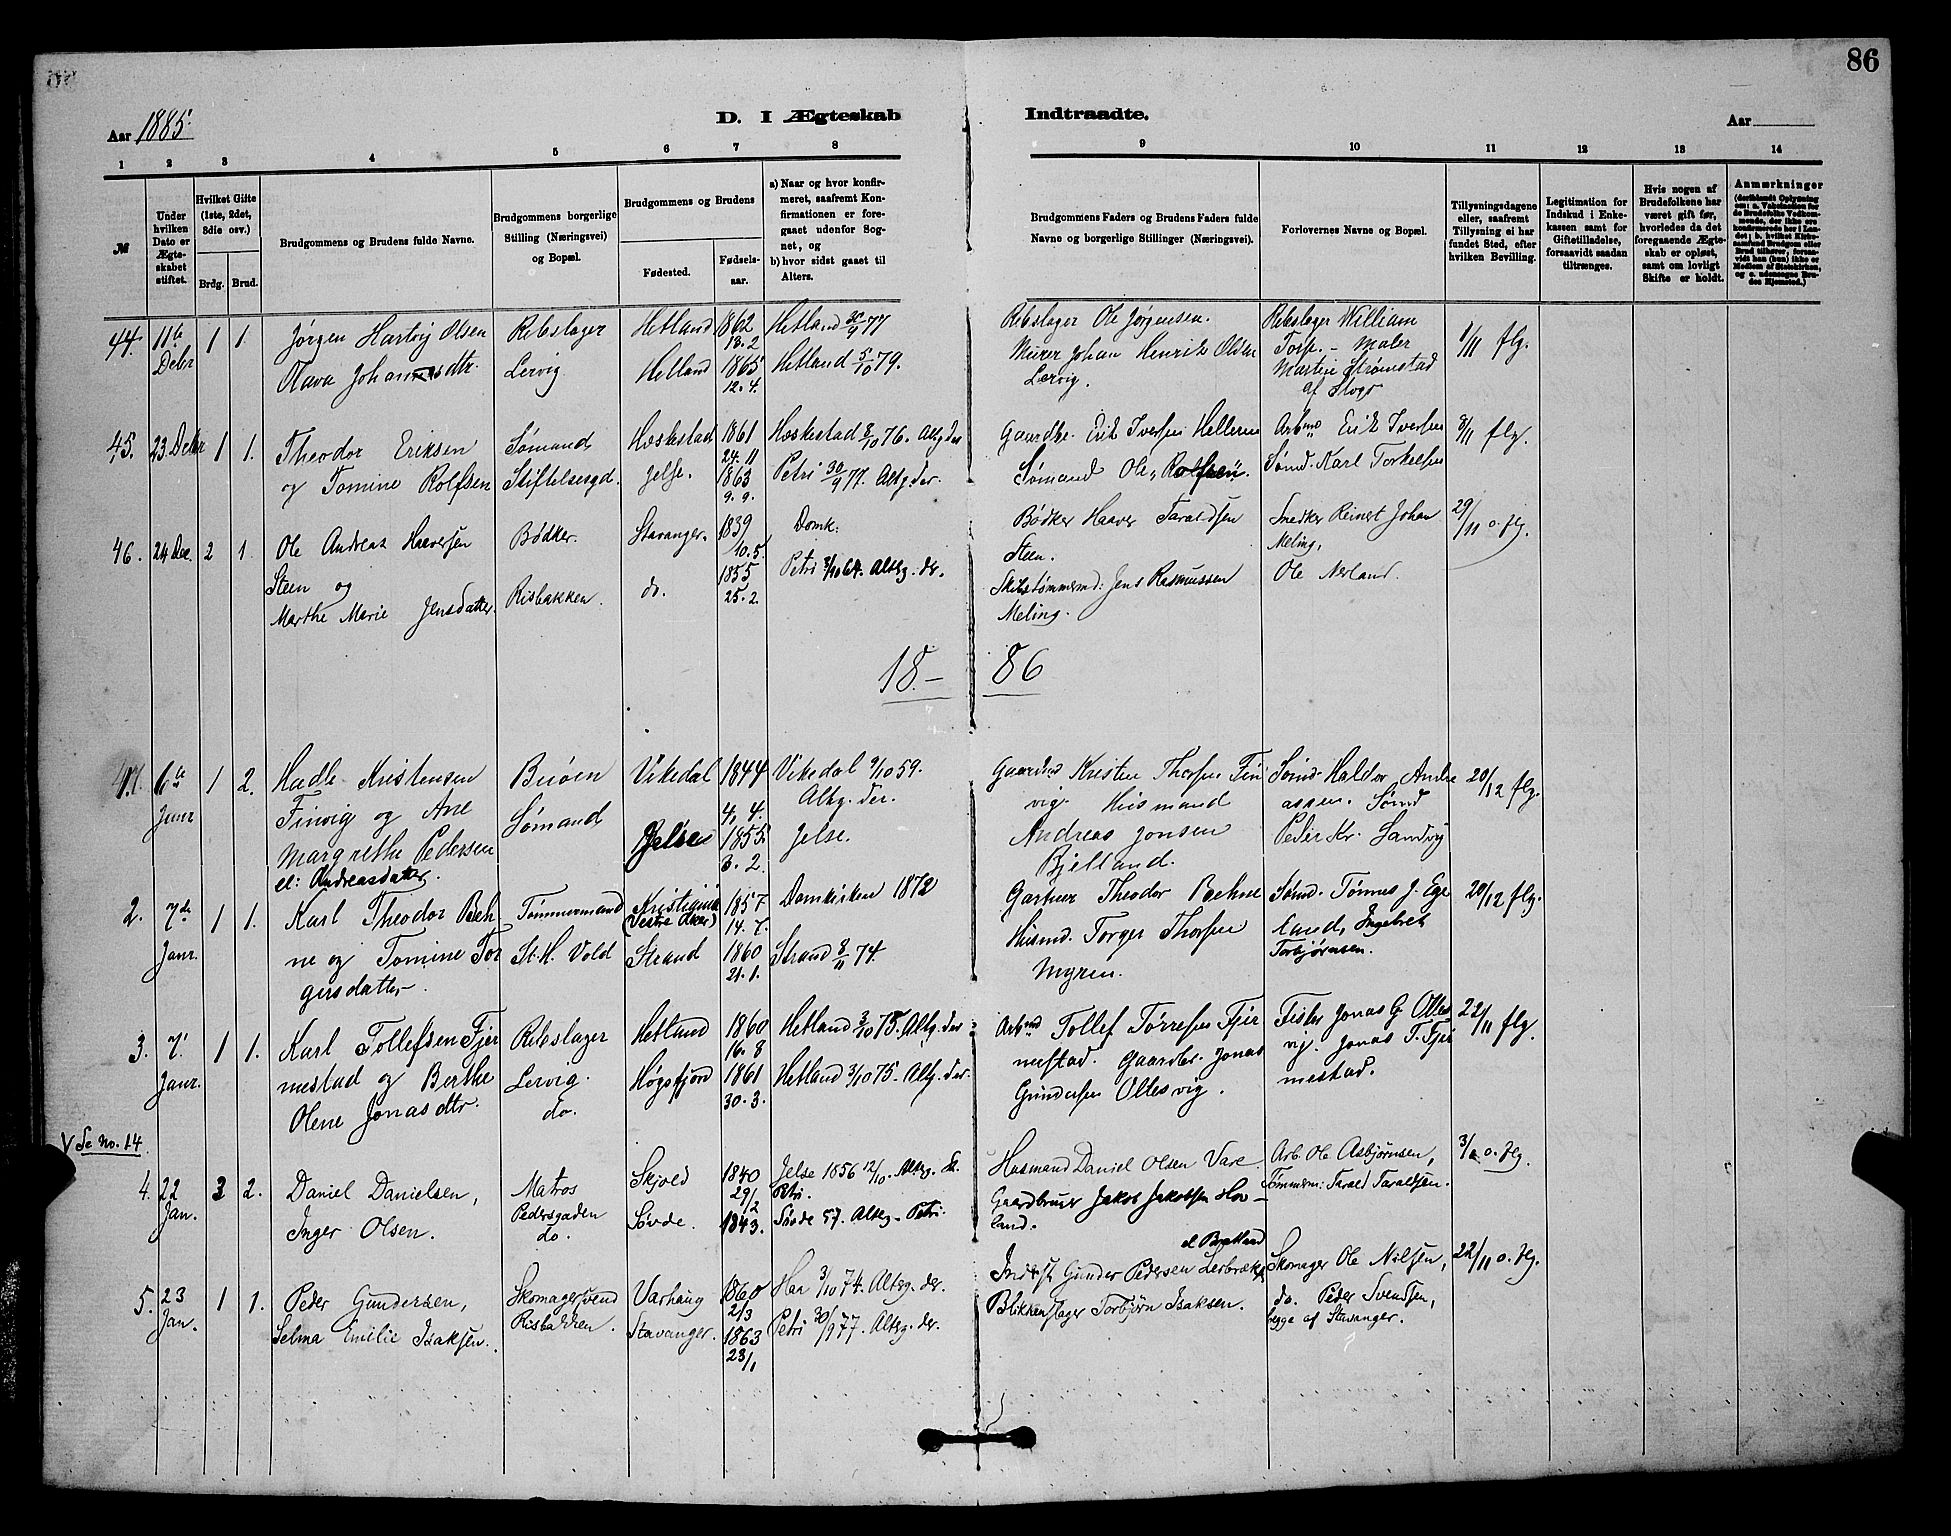 86
Aar 1885.
D. I Ægteskab Indtraadte.
Aar
1 2 3 4 5 6 7 8 9 10 11 12 13 14
№
Under hvilken Dato er Ægteskabet stiftet.
Hvilket Gifte (1ste, 2det, 3die osv.)
Brdg. Brud.
Brudgommens og Brudens fulde Navne.
Brudgommens borgerlige Stilling (Næringsvei) og Bopæl.
Brudgommens og Brudens
Fødested.
Fødselsaar.
a) Naar og hvor konfirmeret, saafremt Konfirmationen er foregaaet udenfor Sognet, og
b) hvor sidst gaaet til Alters.
Brudgommens Faders og Brudens Faders fulde Navne og borgerlige Stillinger (Næringsvei).
Forlovernes Navne og Bopæl.
Tillysningsdagene eller, saafremt Tillysning ei har fundet Sted, efter hvilken Bevilling.
Legitimation for Indskud i Enkekassen samt for Giftetilladelse, forsaavidt saadan tiltrænges.
Hvis nogen af Brudefolkene har været gift før, hvorledes da det foregaaende Ægteskab er opløst, samt om lovligt Skifte er holdt.
Anmærkninger
44. 11te Debr 1 1. Jørgen Hartvig Olsen Rebslager Hetland 1862 Hetland 30/9 77 Rebslager Ole Jørgensen. Rebslager William 1/11 flg.
13.2
Olava Johannesdtr. Lervig. Hetland 1865 Hetland 5/10 79. Murer Johan Henrik Olsen Torp. - Maler
12.4. Lervig. Martin Strømstad
af Skogs
45. 23 Debr 1 1. Theodor Eriksen Sømand Heskestad 1861 Heskestad 8/10 76. Altg. der Gaardbr. Erik Iversen Helleren Arbmd Erik Iversen 8/11 flg.
24.11
og Tomine Rolfsen Stiftelsesgd. Jelse. 1863 Petri 30/9 77. Altg. der. Sømand Ole Rolfsen. Sømd. Karl Torkelsen
9.9.
46. 24 Dec. 2 1. Ole Andreas Haaversen Bødker. Stavanger. 1839 Domk: Bødker Haaver Taraldsen Snedker Reinert Johan 29/11 o. flg.
10.5 Steen. Meling,
Steen og 1855 Petri 3/10 64. Alterg. der. Skibstømmermd: Jens Rasmussen Ole Nerland.
Marthe Marie Jensdatter. Risbakken. do. 25.2. Meling.
18 - 86
6te Janr 1 2. Hadle Kristensen Beiøen Vikedal 1844 Vikedal 9/10 59. Gaardmd Kristen Thorsen Fin Sømd. Haldor Andre 20/12 flg.
Finvig og Ane Sømand 4.4. Altg. der. vig. Husmand assen. Sømd
Margrethe Pedersen Jelse 1855 Jelse. Andreas Jonsen Peder Kr. Sandvig
el: Andreasdatter. 3.2. Bjelland.
2. 7de Janr. 1 1. Karl Theodor Beh Tømmermand Kristiania 1857 Domkirken 1872 Gartner Theodor Behne Sømd. Tønnes J. Ege 20/12 flg.
(Vestre Aker) 14.7.
ne og Tomine Tor St. H. Vold Strand 1860 Strand 8/11 74. Husmd. Torger Thorsen land, Ingebret
21.1. Torbjørnsen.
gersdatter. Myren.
3. 7. Janr. 1 1. Karl Tollefsen Fjer Rebslager Hetland 1860 Hetland 3/10 75. Altg. der Arbmd Tollef Tørresen Fjer Fisker Jonas G. Oltes 22/11 flg.
16.8
mestad og Berthe Lervig. Høgsfjord 1861 Hetland 3/10 75. Altg. der. mestad. Gaardbr. Jonas vig. Jonas T. Fjer
Olene Jonasdtr. do. 30.3. Gundersen Oltesvig. mestad.
V Se No. 14.
4. 22 Jan. 3 2. Daniel Danielsen, Matros Skjold 1840 Jelse 1856 12/10. Alterg. St. Petri. Husmand Daniel Olsen Vare Arb. Ole Asbjørnsen, 3/1 o. flg.
29/2 Tømmerm: Tarald Taraldsen.
Inger Olsen. Pedersgaden do. Søvde. 1843. Søvde 57. Alterg. Petri. Gaardbruger Jakob Jakobsen Hov-
land.
5. 23 Jan. 1 1. Peder Gundersen, Skomagersvend Varhaug 1860 Haa 3/10 74. Alterg. der. Inderst Gunder Pedersen Lerbrække el Bratland Skomager Ole Nilsen, 22/11 o. flg.
2/3
Selma Emilie Isaksen. Risbakken. Stavanger. 1863 Petri 30/9 77. Alterg. der. Blikkenslager Torbjørn Isaksen. do. Peder Svendsen,
23/1 begge af Stavanger.